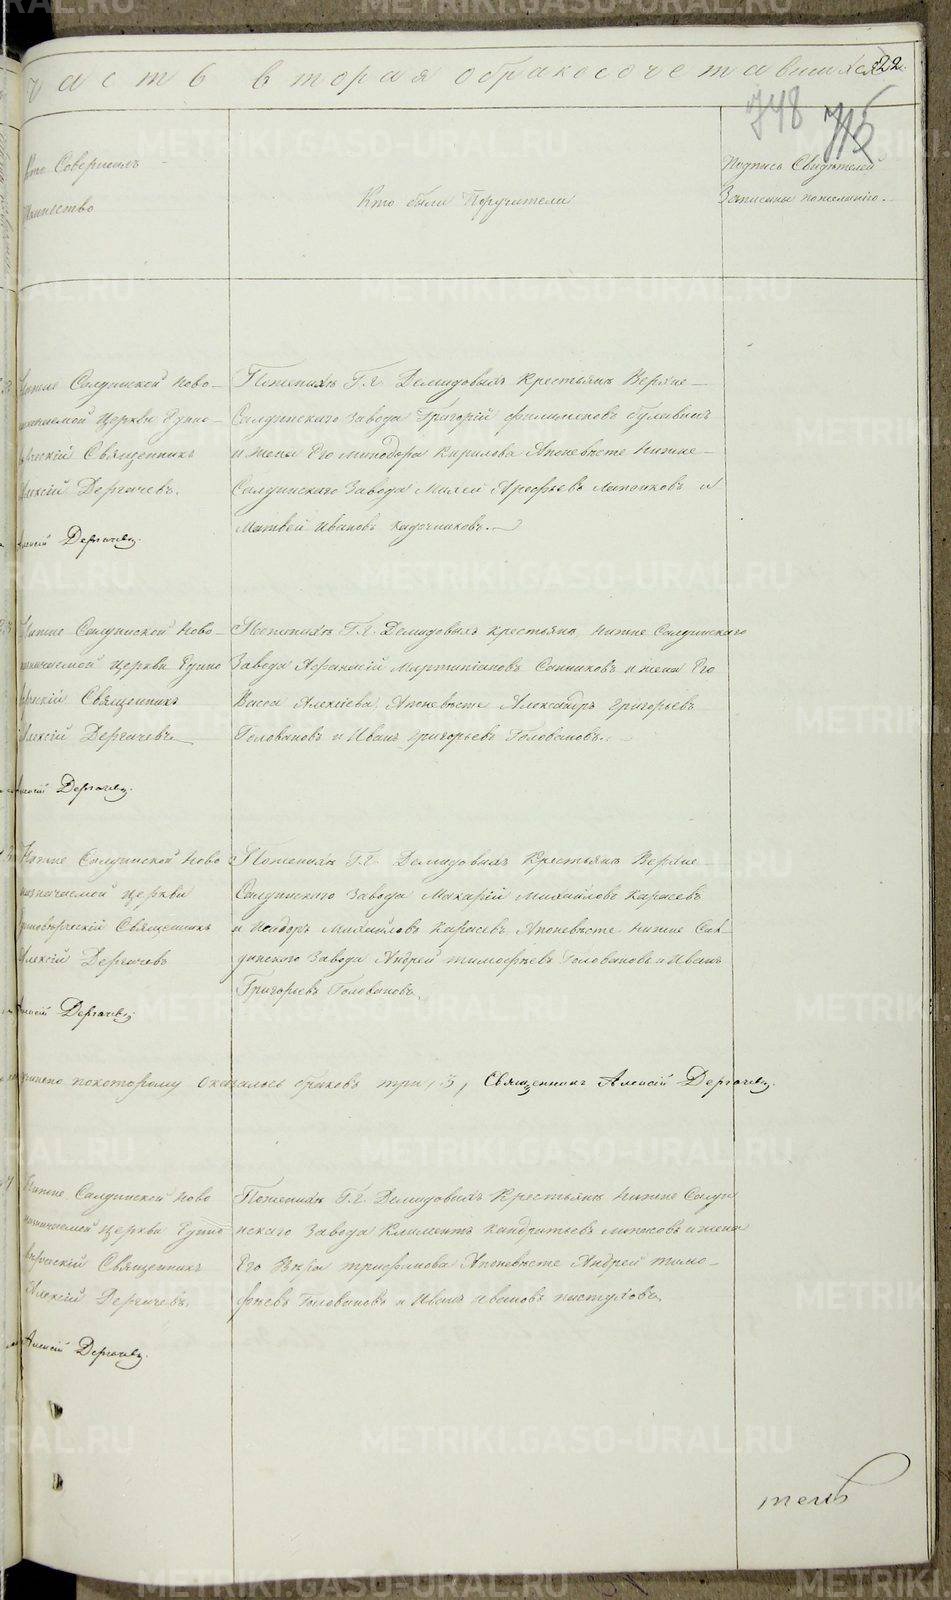 часть вторая о бракосочетавшихся
22.
748
715
Кто Совершалъ
Таинство
Кто были Поручители
Подпись Свидѣтелей
Записаны пожеланію.
Нижне Салдинской Ново-
назначаемой Церкви Едино-
вѣрческій Священникъ
Алексѣй Дергачевъ.
Алексій Дергачевъ.
Поженихѣ Г.г. Демидовыхъ Крестьянъ Верхне-
Салдинскаго Завода Григорій Филимоновъ Гуливинъ
и жена Его Минодора Карпилова Апоневѣсте Нижне-
Салдинскаго Завода Мокей Арефьевъ Лапенковъ и
Матвей Ивановъ Кадочниковъ.
Нижне Салдинской Ново-
назначаемой Церкви Едино
вѣрческій Священникъ
Алексій Дергачевъ.
Алексій Дергачевъ.
Поженихѣ Г.г. Демидовыхъ крестьянъ Нижне Салдинскаго
Завода Афанасій Мартиніановъ Санниковъ и жена Его
Васса Алексіева, Апоневѣсте Александръ Григорьевъ
Головановъ и Иванъ Григорьевъ Головановъ.
Нижне Салдинской Ново
назначаемой Церкви
Единовѣрческій Священникъ
Алексій Дергачевъ
Алексій Дергачевъ.
Поженихѣ Г.г. Демидовыхъ Крестьянъ Верхне
Салдинскаго Завода Макарій Михайловъ Карасевъ
и Исидоръ Михайловъ Карасевъ Апоневѣсте Нижне Сал
динскаго Завода Андрей Тимофѣевъ Головановъ и Иванъ
Григорьевъ Головановъ.
покоторому оказалось браковъ три, 3, Священникъ Алексій Дергачевъ.
Нижне Салдинской Ново
назначаемой Церкви Едино
вѣрческій Священникъ
Алексій Дергачевъ.
Алексій Дергачевъ.
Поженихѣ Г.г. Демидовыхъ Крестьянъ Нижне Салди
нскаго Завода Климентъ Кандратьевъ и жена
Его Вѣра Трифанова Апоневѣсте Андрей Тимо-
фѣевъ Головановъ и Иванъ Ивановъ Пастуховъ.
тель
METRIKI.GASO-URAL.RU